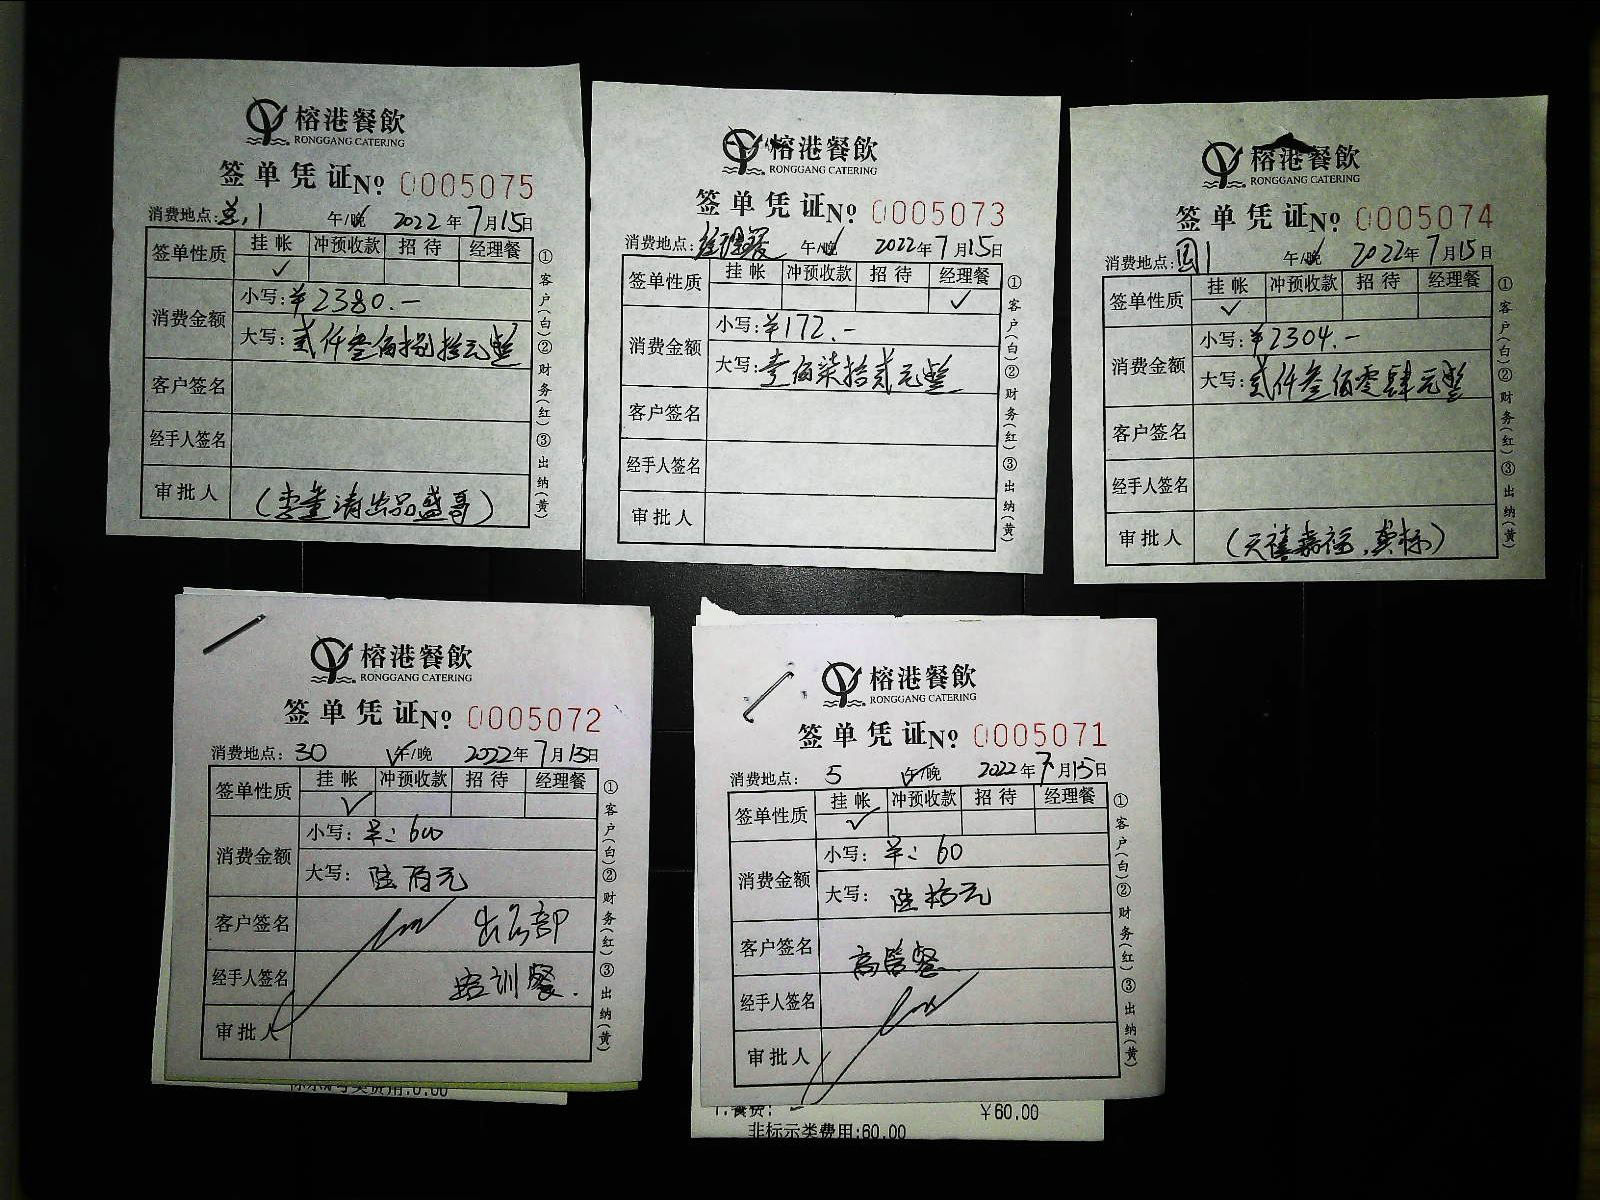 榕港餐飲
RONGGANG CATERING
签单凭证 № 0005075
消费地点: 总.1 午/晚 2022年7月15日
签单性质 挂帐 冲预收款 招待 经理餐
✓
消费金额 小写:¥2380.—
大写:贰仟叁佰捌拾元整
客户签名
经手人签名
审批人 (李董请出品盛哥)
①客户(白)②财务(红)③出纳(黄)
榕港餐飲
RONGGANG CATERING
签单凭证 № 0005073
消费地点: 经理餐 午/晚 2022年7月15日
签单性质 挂帐 冲预收款 招待 经理餐
✓
消费金额 小写:¥172.—
大写:壹佰柒拾贰元整
客户签名
经手人签名
审批人
①客户(白)②财务(红)③出纳(黄)
榕港餐飲
RONGGANG CATERING
签单凭证 № 0005074
消费地点: 国1 午/晚 2022年7月15日
签单性质 挂帐 冲预收款 招待 经理餐
✓
消费金额 小写:¥2304.—
大写:贰仟叁佰零肆元整
客户签名
经手人签名
审批人 (天禧嘉福,卖标)
①客户(白)②财务(红)③出纳(黄)
榕港餐飲
RONGGANG CATERING
签单凭证 № 0005072
消费地点: 30 午/晚 2022年7月15日
签单性质 挂帐 冲预收款 招待 经理餐
✓
消费金额 小写: ¥: 600
大写: 陆百元
客户签名 出品部
经手人签名 培训餐.
审批人
①客户(白)②财务(红)③出纳(黄)
榕港餐飲
RONGGANG CATERING
签单凭证 № 0005071
消费地点: 5 午/晚 2022年7月15日
签单性质 挂帐 冲预收款 招待 经理餐
✓
消费金额 小写: ¥: 60
大写: 陆拾元
客户签名 高管餐
经手人签名
审批人
①客户(白)②财务(红)③出纳(黄)
1.餐费: ¥60.00
非标示类费用:60.00